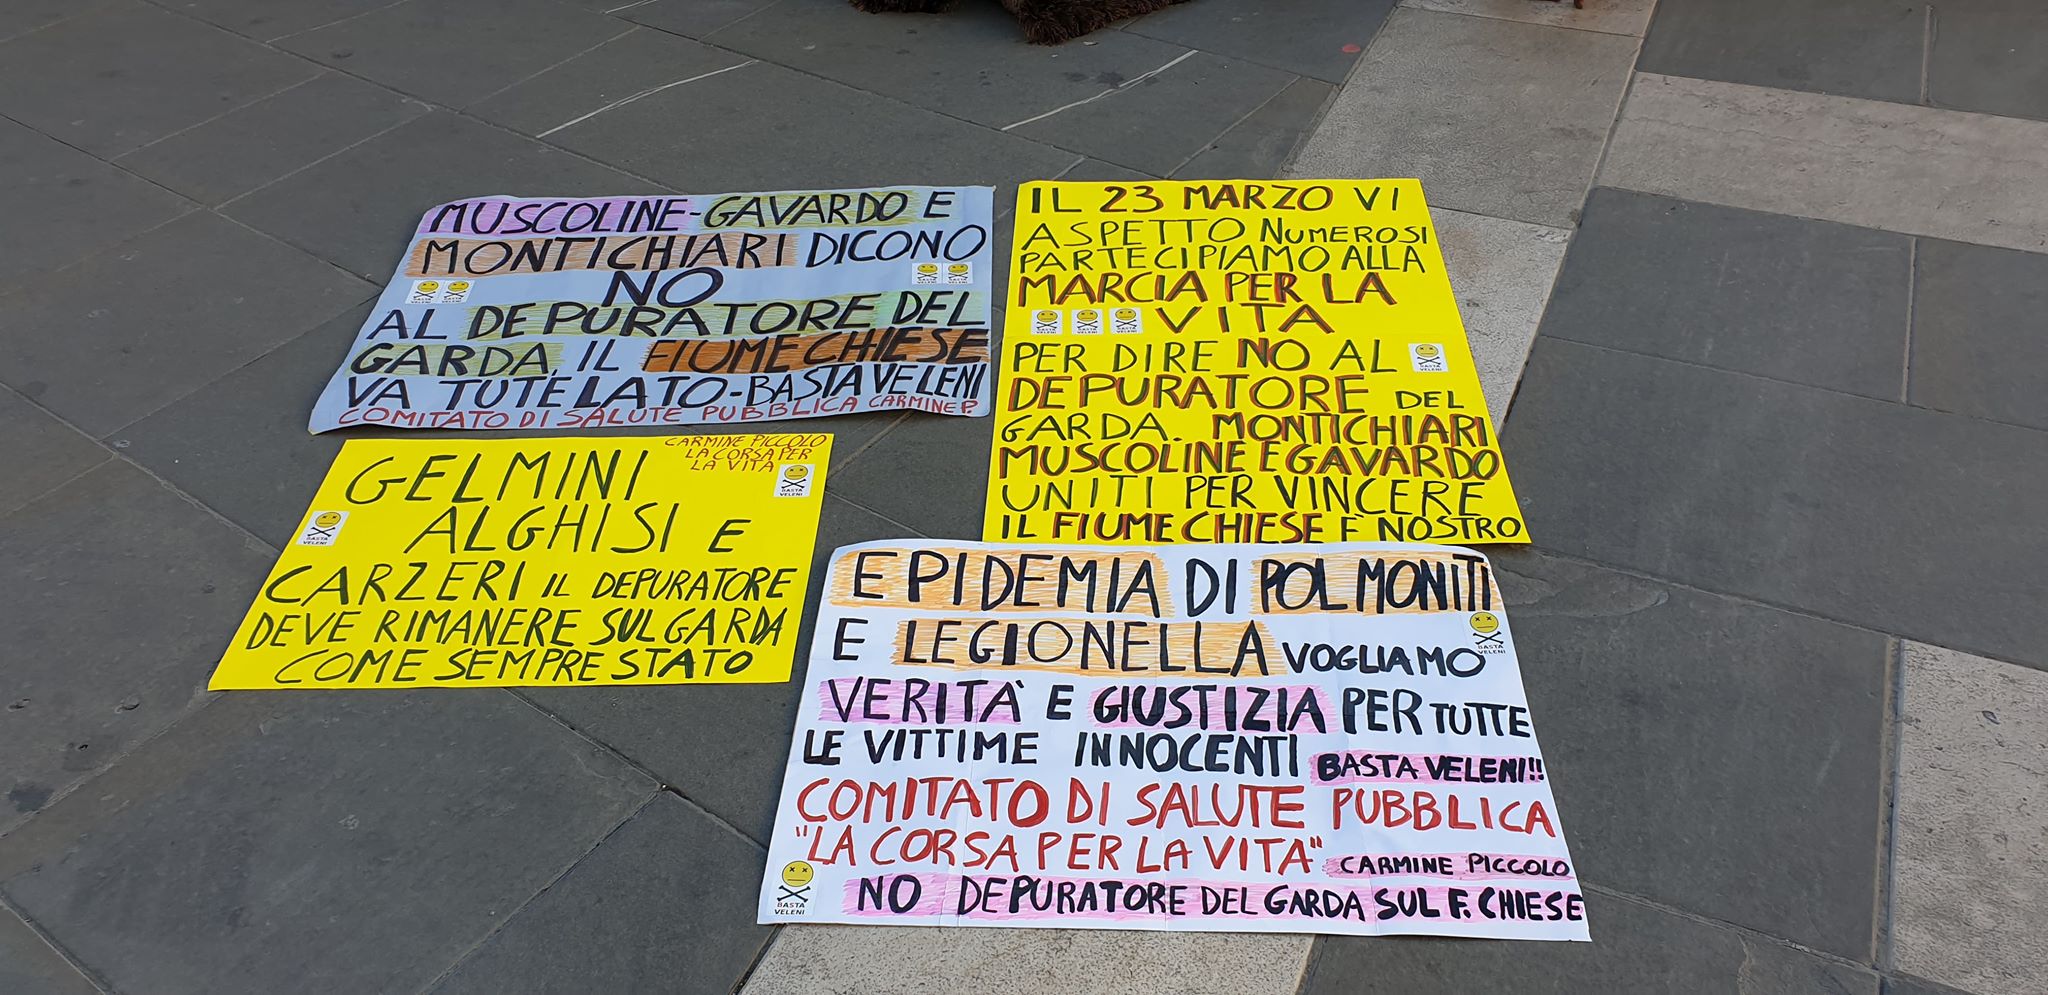 MUSCOLINE-GAVARDO E
MONTICHIARI DICONO
NO
BASTA
VELENI
BASTA
VELENI
BASTA
VELENI
BASTA
VELENI
AL DEPURATORE DEL
GARDA, IL FIUME CHIESE
VA TUTELATO-BASTA VELENI
COMITATO DI SALUTE PUBBLICA CARMINE P.
IL 23 MARZO VI
ASPETTO NUMEROSI
PARTECIPIAMO ALLA
MARCIA PER LA
VITA
BASTA
VELENI
BASTA
VELENI
BASTA
VELENI
PER DIRE NO AL
BASTA
VELENI
DEPURATORE DEL
GARDA. MONTICHIARI
MUSCOLINE E GAVARDO
UNITI PER VINCERE
IL FIUME CHIESE È NOSTRO
CARMINE PICCOLO
LA CORSA PER
LA VITA
BASTA
VELENI
GELMINI
ALGHISI E
BASTA
VELENI
CARZERI IL DEPURATORE
DEVE RIMANERE SUL GARDA
COME SEMPRE STATO
EPIDEMIA DI POLMONITI
E LEGIONELLA VOGLIAMO
BASTA
VELENI
VERITÀ E GIUSTIZIA PER TUTTE
LE VITTIME INNOCENTI BASTA VELENI!!
COMITATO DI SALUTE PUBBLICA
"LA CORSA PER LA VITA" CARMINE PICCOLO
BASTA
VELENI
NO DEPURATORE DEL GARDA SUL F. CHIESE